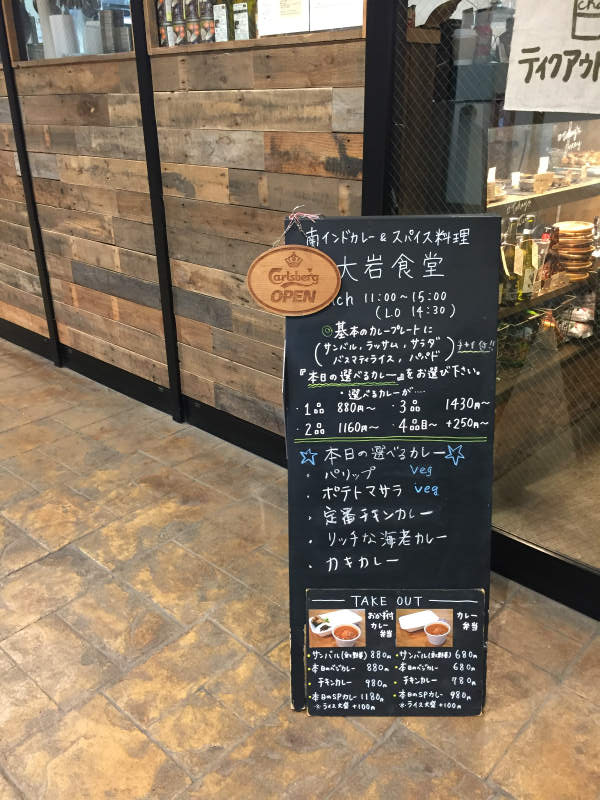 テイクアウト
南インドカレー & スパイス料理
大岩食堂
Carlsberg
OPEN
ch 11:00～15:00
(LO 14:30)
◎基本のカレープレートに
(サンバル, ラッサム, サラダ
バスマティライス, パパド)
『本日の選べるカレー』をお選び下さい。
・選べるカレーが‥‥
・1品 880円～ ・3品 1430円～
・2品 1160円～ ・4品目～ +250円～
☆本日の選べるカレー☆
・パリップ veg
・ポテトマサラ veg
・定番チキンカレー
・リッチな海老カレー
・カキカレー
TAKE OUT
おかず付カレー弁当
・サンバル(豆と野菜) 880円
・本日のベジカレー 880円
・チキンカレー 980円
・本日のSPカレー 1180円
※ライス大盛 +100円
カレー弁当
・サンバル(豆と野菜) 680円
・本日のベジカレー 680円
・チキンカレー 780円
・本日のSPカレー 980円
※ライス大盛 +100円